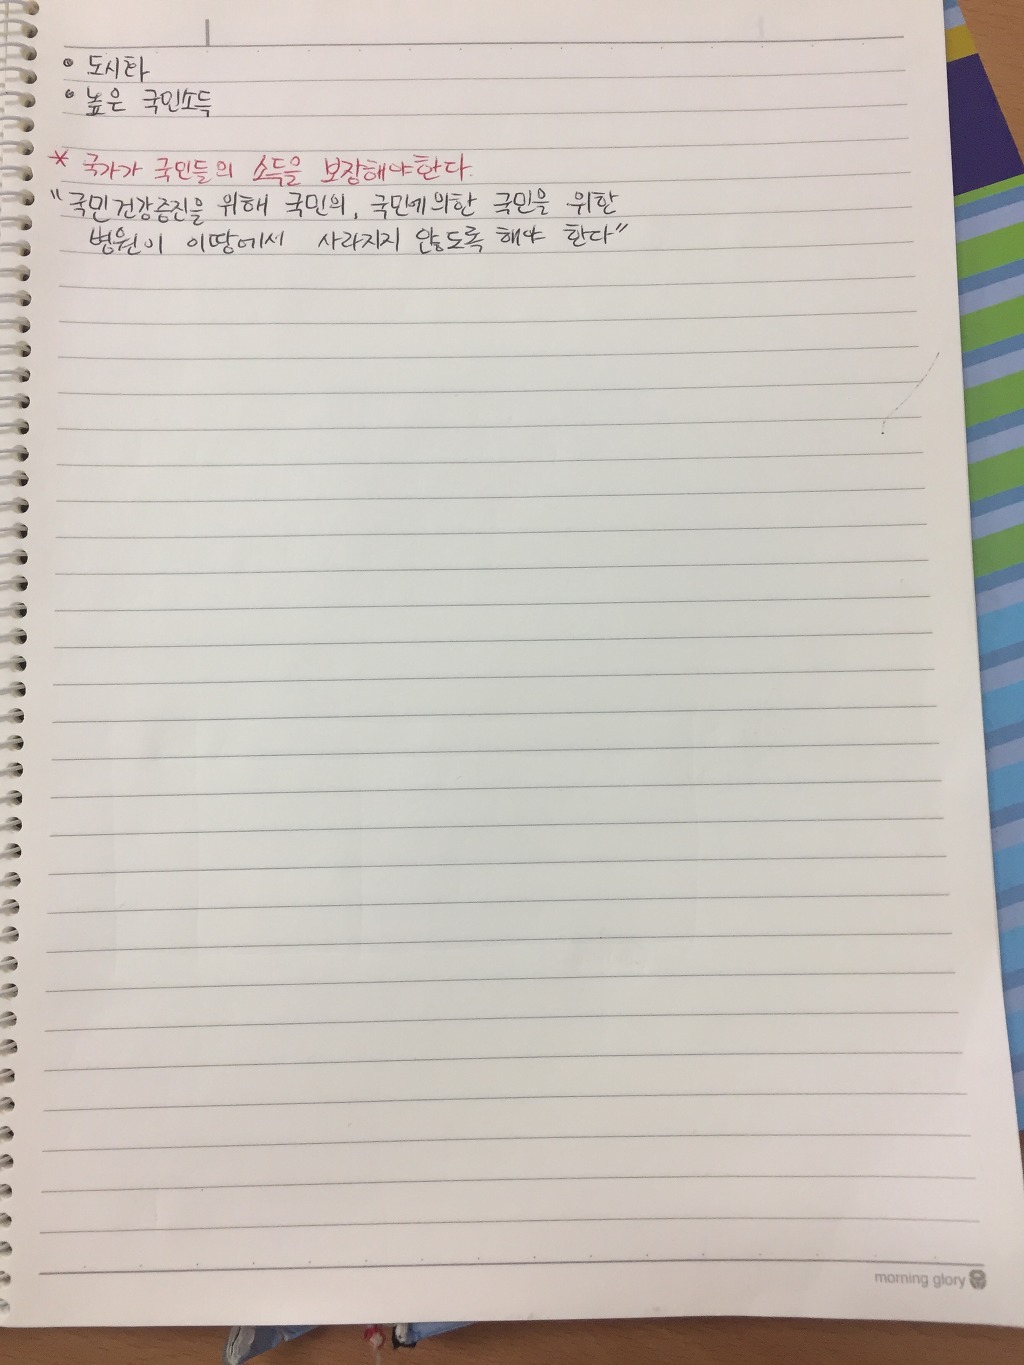 • 도시화
• 높은 국민소득
* 국가가 국민들의 소득을 보장해야한다.
"국민건강증진을 위해 국민의, 국민에의한 국민을 위한
병원이 이땅에서 사라지지 않도록 해야 한다"
morning glory